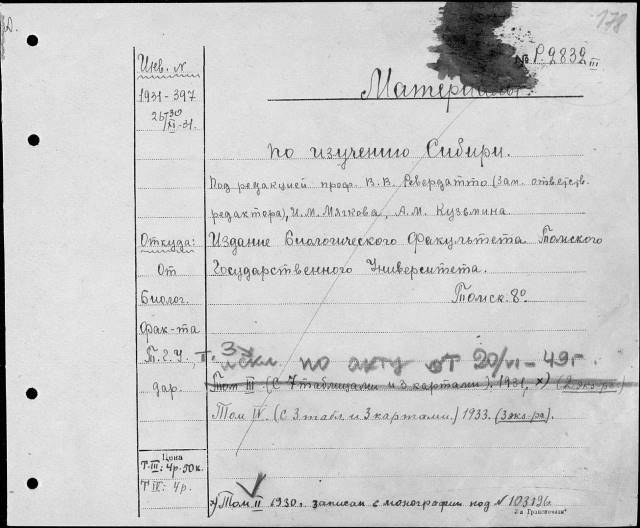 178
Инв. №
№ Р. 2832 III
Материалы
1931-397
26/30 XI-31.
по изучению Сибири.
Под редакцией проф. В.В. Ревердатто (Зам. ответств.
редактора), И.М. Мягкова, А.М. Кузьмина
Откуда: Издание Биологического Факультета Томского
От Государственного Университета.
Биолог. Томск. 8°
Фак-та
Т.Г.У. т. 3 искл. по акту от 20/VI-49г.
дар. Том III (С 7 таблицами и 3 картами), 1931, х) (2 экз-ра)
Том IV. (С 3 табл. и 3 картами.) 1933. (3 экз-ра).
Цена
Т. III: 4р. 50к.
Т IV: 4р.
х) Том II 1930г. записан в монографии под № 103196.